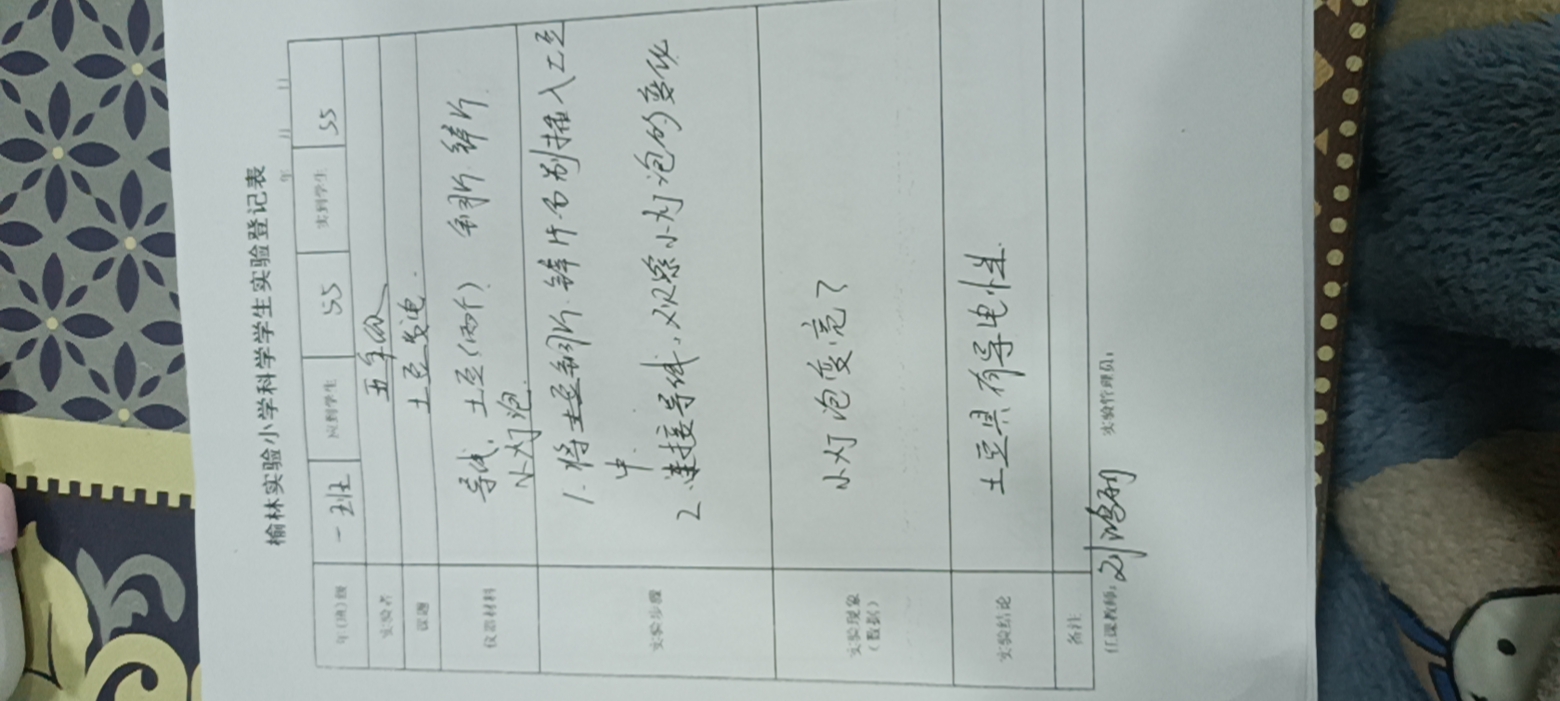 榆林实验小学科学学生实验登记表
年 月 日
年(班)级 一班 应到学生 55 实到学生 55
实验者 五年级
课题 土豆发电.
仪器材料 导线、土豆(两个) 铜片. 锌片.
小灯泡.
实验步骤 1.将土豆铜片.锌片分别插入土豆
中.
2.连接导线,观察小灯泡的变化
实验现象
(数据) 小灯泡变亮了
实验结论 土豆具有导电性.
备注
任课教师: 实验管理员: